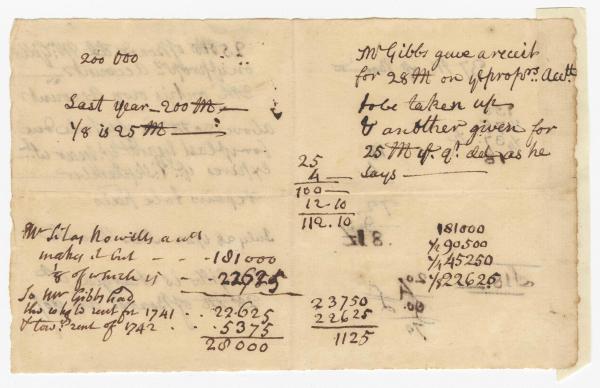 200 000
Last year - 200 M -
1/8 is 25 M -
Mr Gibbs gave a receit
for 28 M on ye propr's. Acctt
to be taken up
& another given for
25 M as he
says -
25
4 -
100 -
12.10
112.10
Mr Silas Nowells acct
makes it but - - 181000
1/8 of which is - 22625
So Mr Gibbs had
the whole rent for 1741 . . 22625
& towds rent of 1742 . . 5375
28000
23750
22625
1125
181000
1/2 90500
1/4 45250
1/8 22625